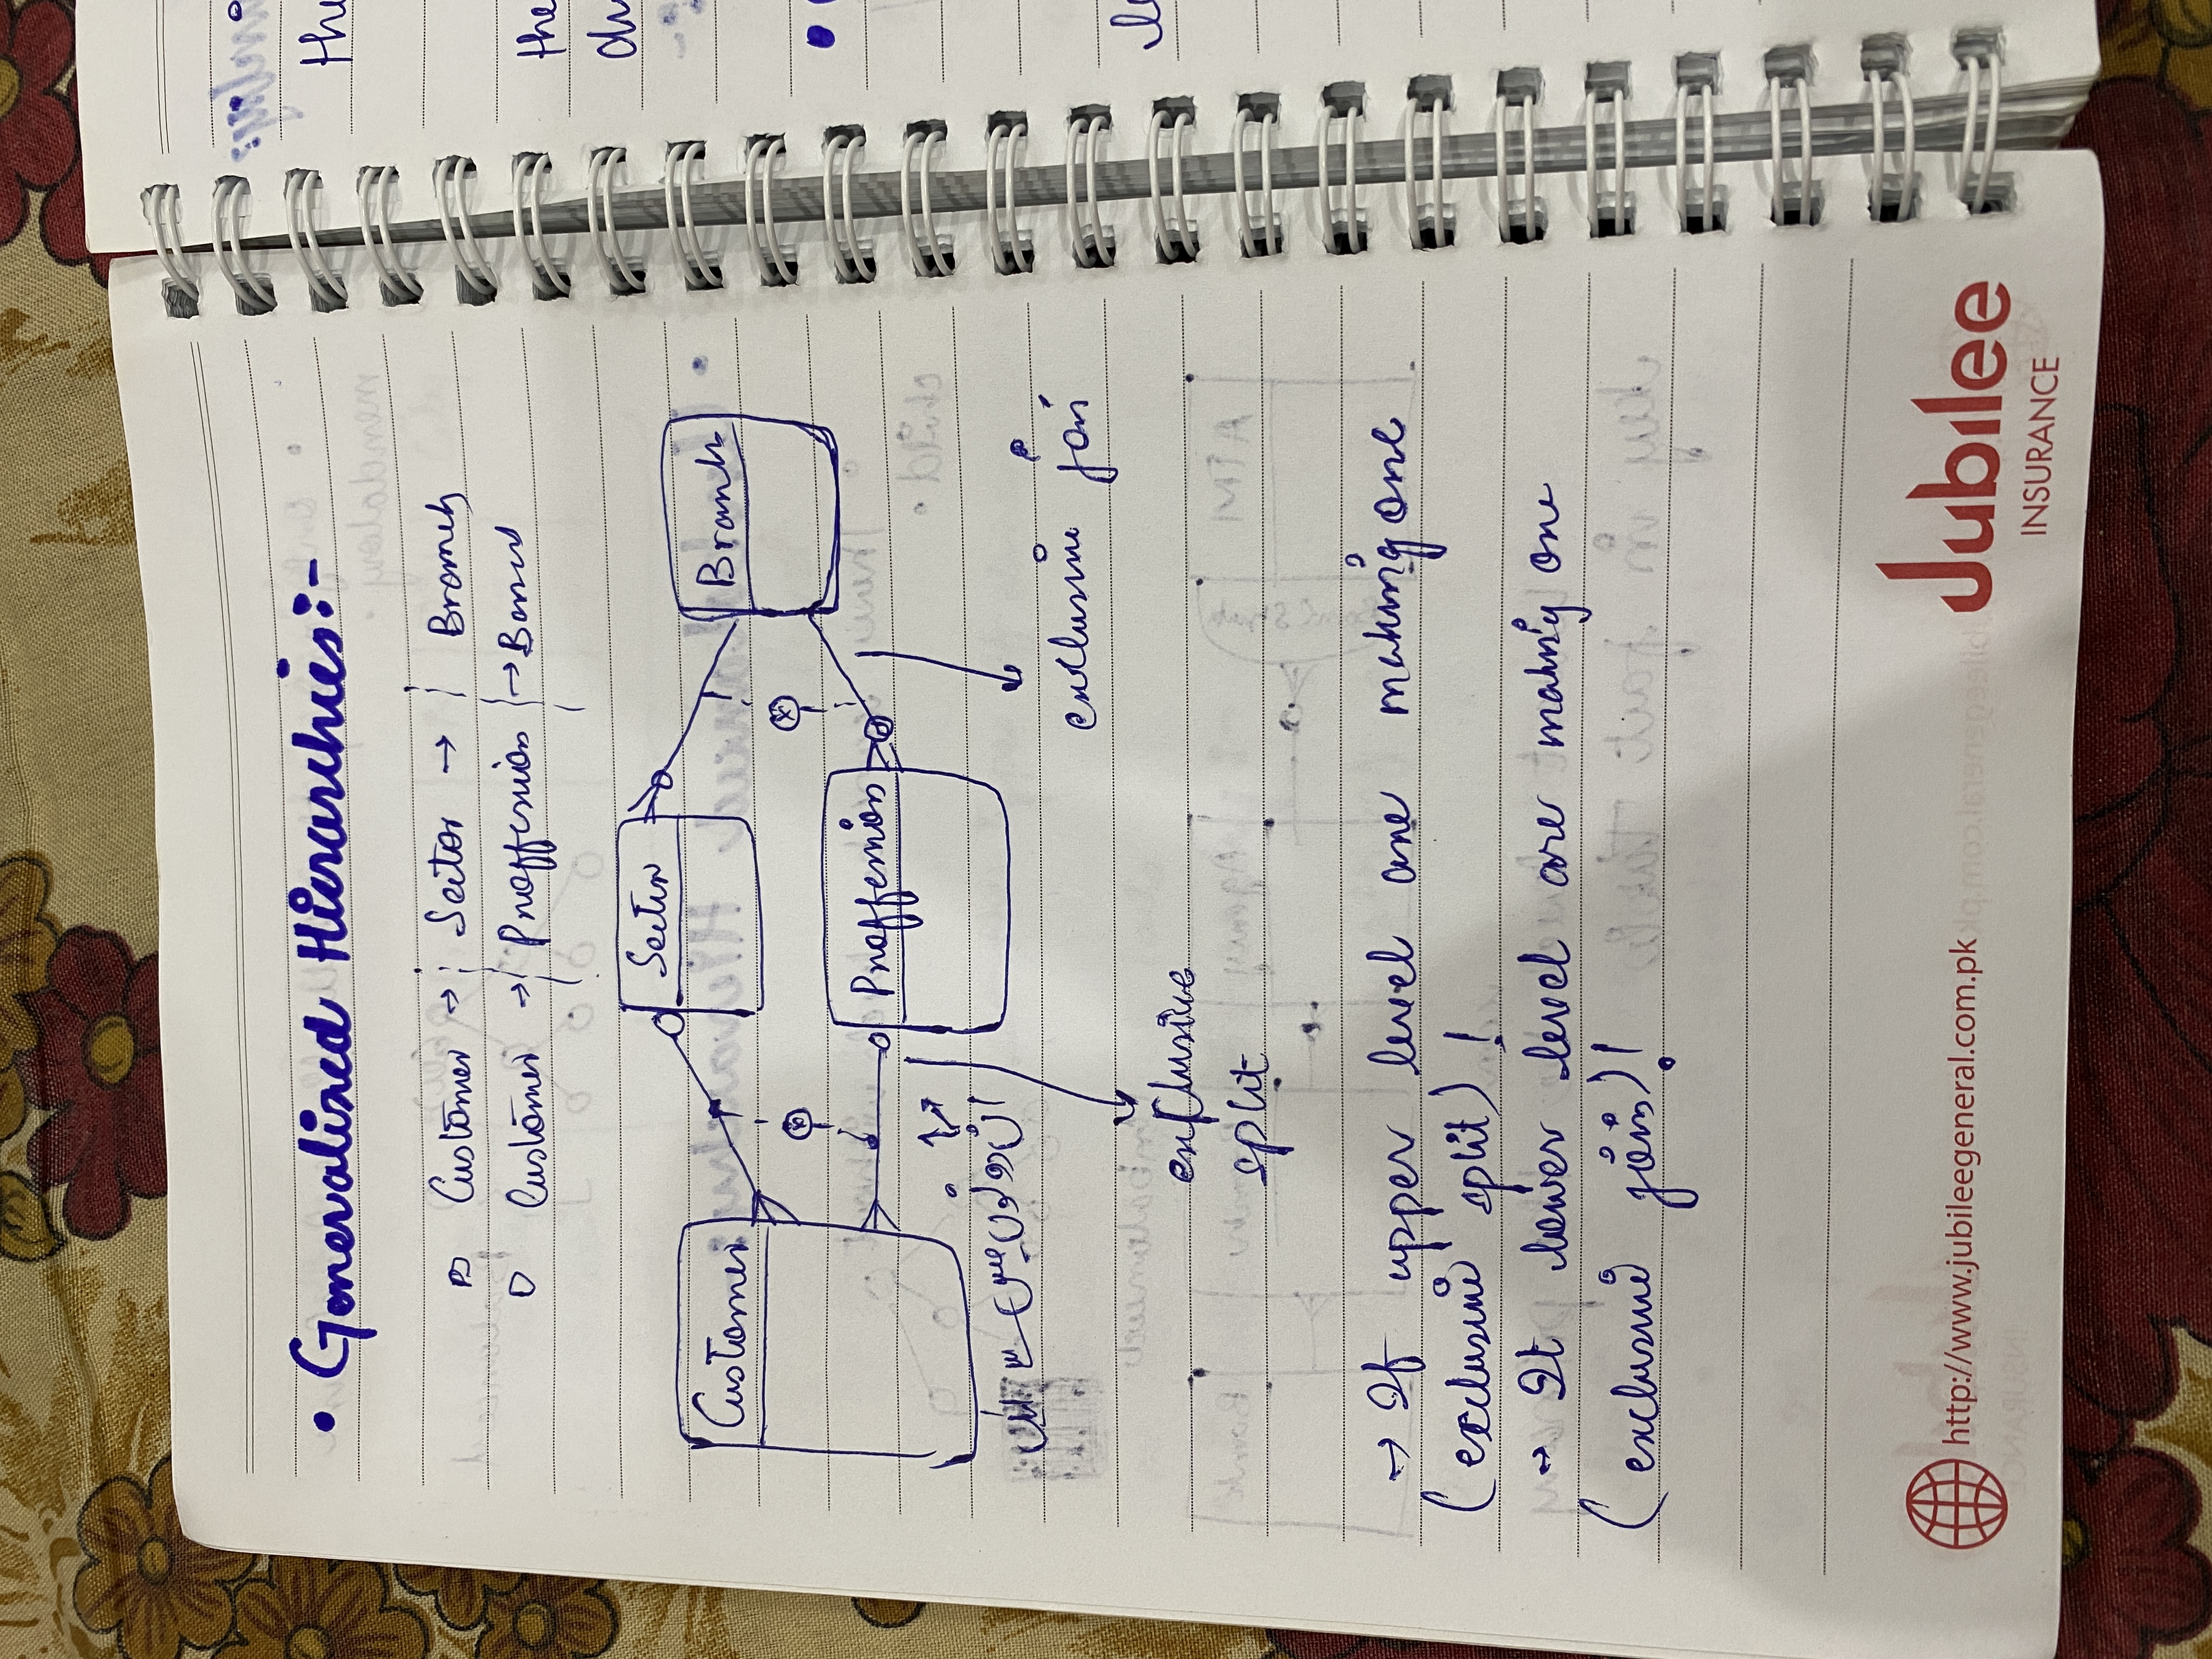 • Generalized Hierarchies:-
Customer → Sector → Branch
Customer → Proffession →
Sector
Customer
Branch
Proffession
ان دونوں میں سے ایک
exclusive join
exclusive
split
→ If upper level are making one
(exclusive split)!
→ If lower level are making one
(exclusive join)!
http://www.jubileegeneral.com.pk
Jubilee
INSURANCE
the
the